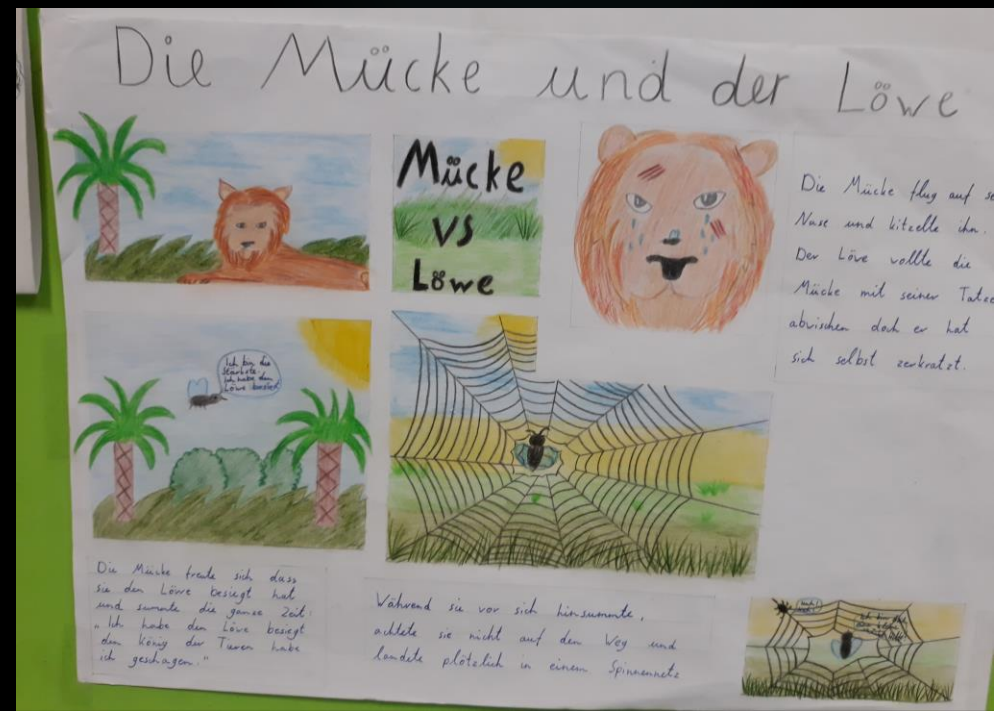 Die Mücke und der Löwe
Mücke
VS
Löwe
Die Mücke flug auf
Nase und kitzelle ihn.
Der Löve vollte die
Mücke mit seiner
abwischen doch er hat
sich selbst zerkratzt.
Ich bin die
Stärkste,
Ich habe den
Löwe besiegt
Die Mücke freute sich dass
sie den Löwe besiegt hat
und summte die ganze Zeit:
"Ich habe den Löwe besiegt
den König der Tieren habe
ich geschagen."
Während sie vor sich hinsummte,
achtete sie nicht auf den Weg und
landete plötzlich in einem Spinnennetz